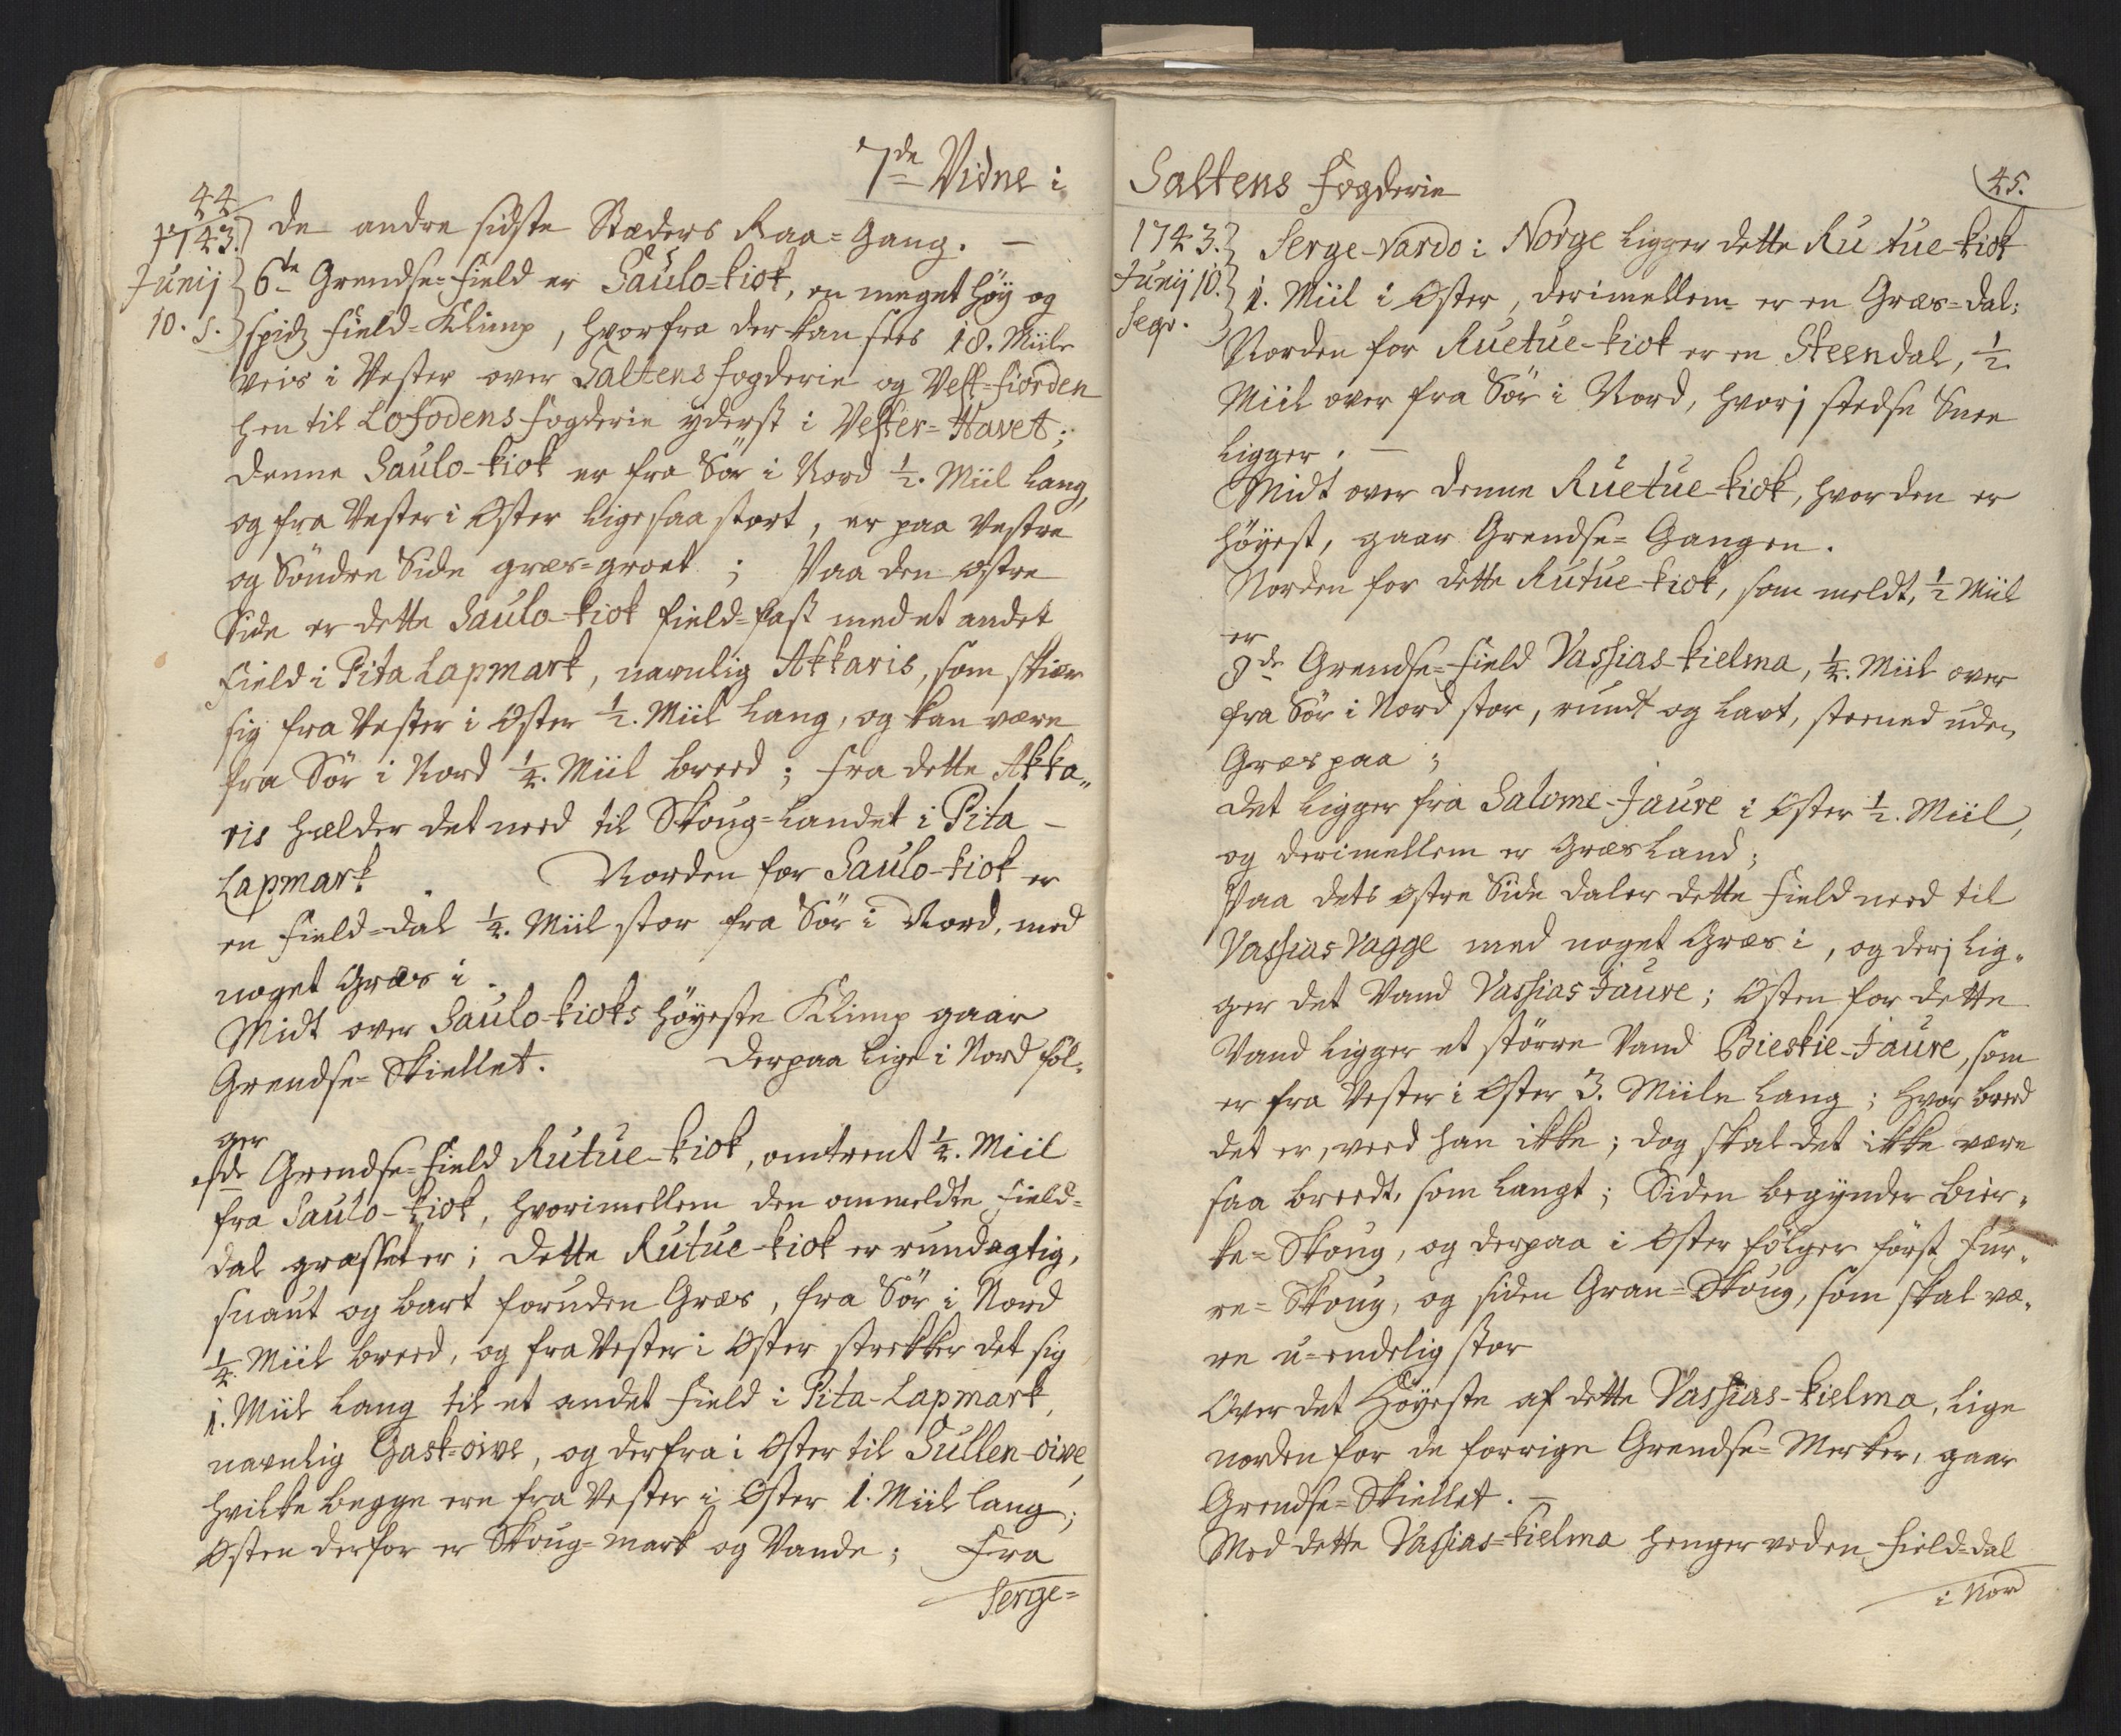 7de Vidne i
44
1743.
Junij
10. s.
de andre sidste Stæders Raa-Gang. —
6te Grendse-Field er Saulo-kiok, en meget høy og
spidz Field-Klimp, hvorfra der kan sees 18. Miile
veis i Vester over Saltens Fogderie og Vest-Fiorden
hen til Lofodens Fogderie yderst i Vester-Havet;
denne Saulo-kiok er fra Sör i Nord 1/2. Miil lang,
og fra Vester i Öster ligesaa stort, er paa Vestre
og Söndre Side græs-groet; Paa den östre
Side er dette Saulo-kiok Field-fast med et andet
Field i Pita Lapmark, navnlig Akkaris, som skiær
sig fra Vester i Öster 1/2. Miil lang, og kan være
fra Sör i Nord 1/4. Miil breed; fra dette Akka-
ris hælder det need til Skoug-Landet i Pita —
Lapmark. Norden for Saulo-kiok er
en Field-dal 1/4. Miil stor fra Sör i Nord, med
noget Græs i.
Midt over Saulo-kioks höyeste Klimp gaar
Grendse-Skiellet. Derpaa lige i Nord föl-
ger
7de Grendse-Field Rutue-kiok, omtrent 1/4. Miil
fra Saulo-kiok, hvorimellem den ommeldte Field-
dal græsset er; dette Rutue-kiok er rundagtig,
snaut og bart foruden Græs, fra Sör i Nord
1/4. Miil breed, og fra Vester i Öster strekker det sig
1. Miil lang til et andet Field i Pita-Lapmark,
navnlig Gask-oive, og derfra i Öster til Sullen-oive,
hvilke begge ere fra Vester i Öster 1. Miil lang;
Östen derfor er Skoug-mark og Vande; Fra
Serge-
Saltens Fogderie
45.
1743.
Junij 10.
seqv.
Serge-vardo i Norge ligger dette Rutue-kiok
1. Miil i Öster, derimellem er en Græs-dal;
Norden for Ruetue-kiok er en Steendal, 1/2
Miil over fra Sör i Nord, hvorj stedse Snee
ligger. —
Midt over denne Ruetue-kiok, hvor den er
höyest, gaar Grendse-Gangen.
Norden for dette Rutue-kiok, som meldt, 1/2 Miil
er
8de Grendse-Field Vassias-kielma, 1/4. Miil over
fra Sör i Nord stor, rundt og lavt, steened uden
Græs paa;
det ligger fra Salome-Jaure i Öster 1/2. Miil,
og derimellem er Græsland;
Paa dets östre Side daler dette Field need til
Vassias Vagge med noget Græs i, og derj lig-
ger det Vand Vassias Jaure; Östen for dette
Vand ligger et större Vand Bieskie-Jaure, som
er fra Vester i Öster 3. Miile lang; hvor breed
det er, veed han ikke; dog skal det ikke være
saa breedt, som langt; Siden begynder Bier-
ke-Skoug, og derpaa i Öster fölger först Fur-
re-Skoug, og siden Gran-Skoug, som skal væ-
re u-endelig stor
Over det Höyeste af dette Vassias-kielma, lige
norden for de forrige Grendse-Merker, gaar
Grendse-Skiellet. —
Med dette Vassias-kielma henger ved en Field-dal
i Nord